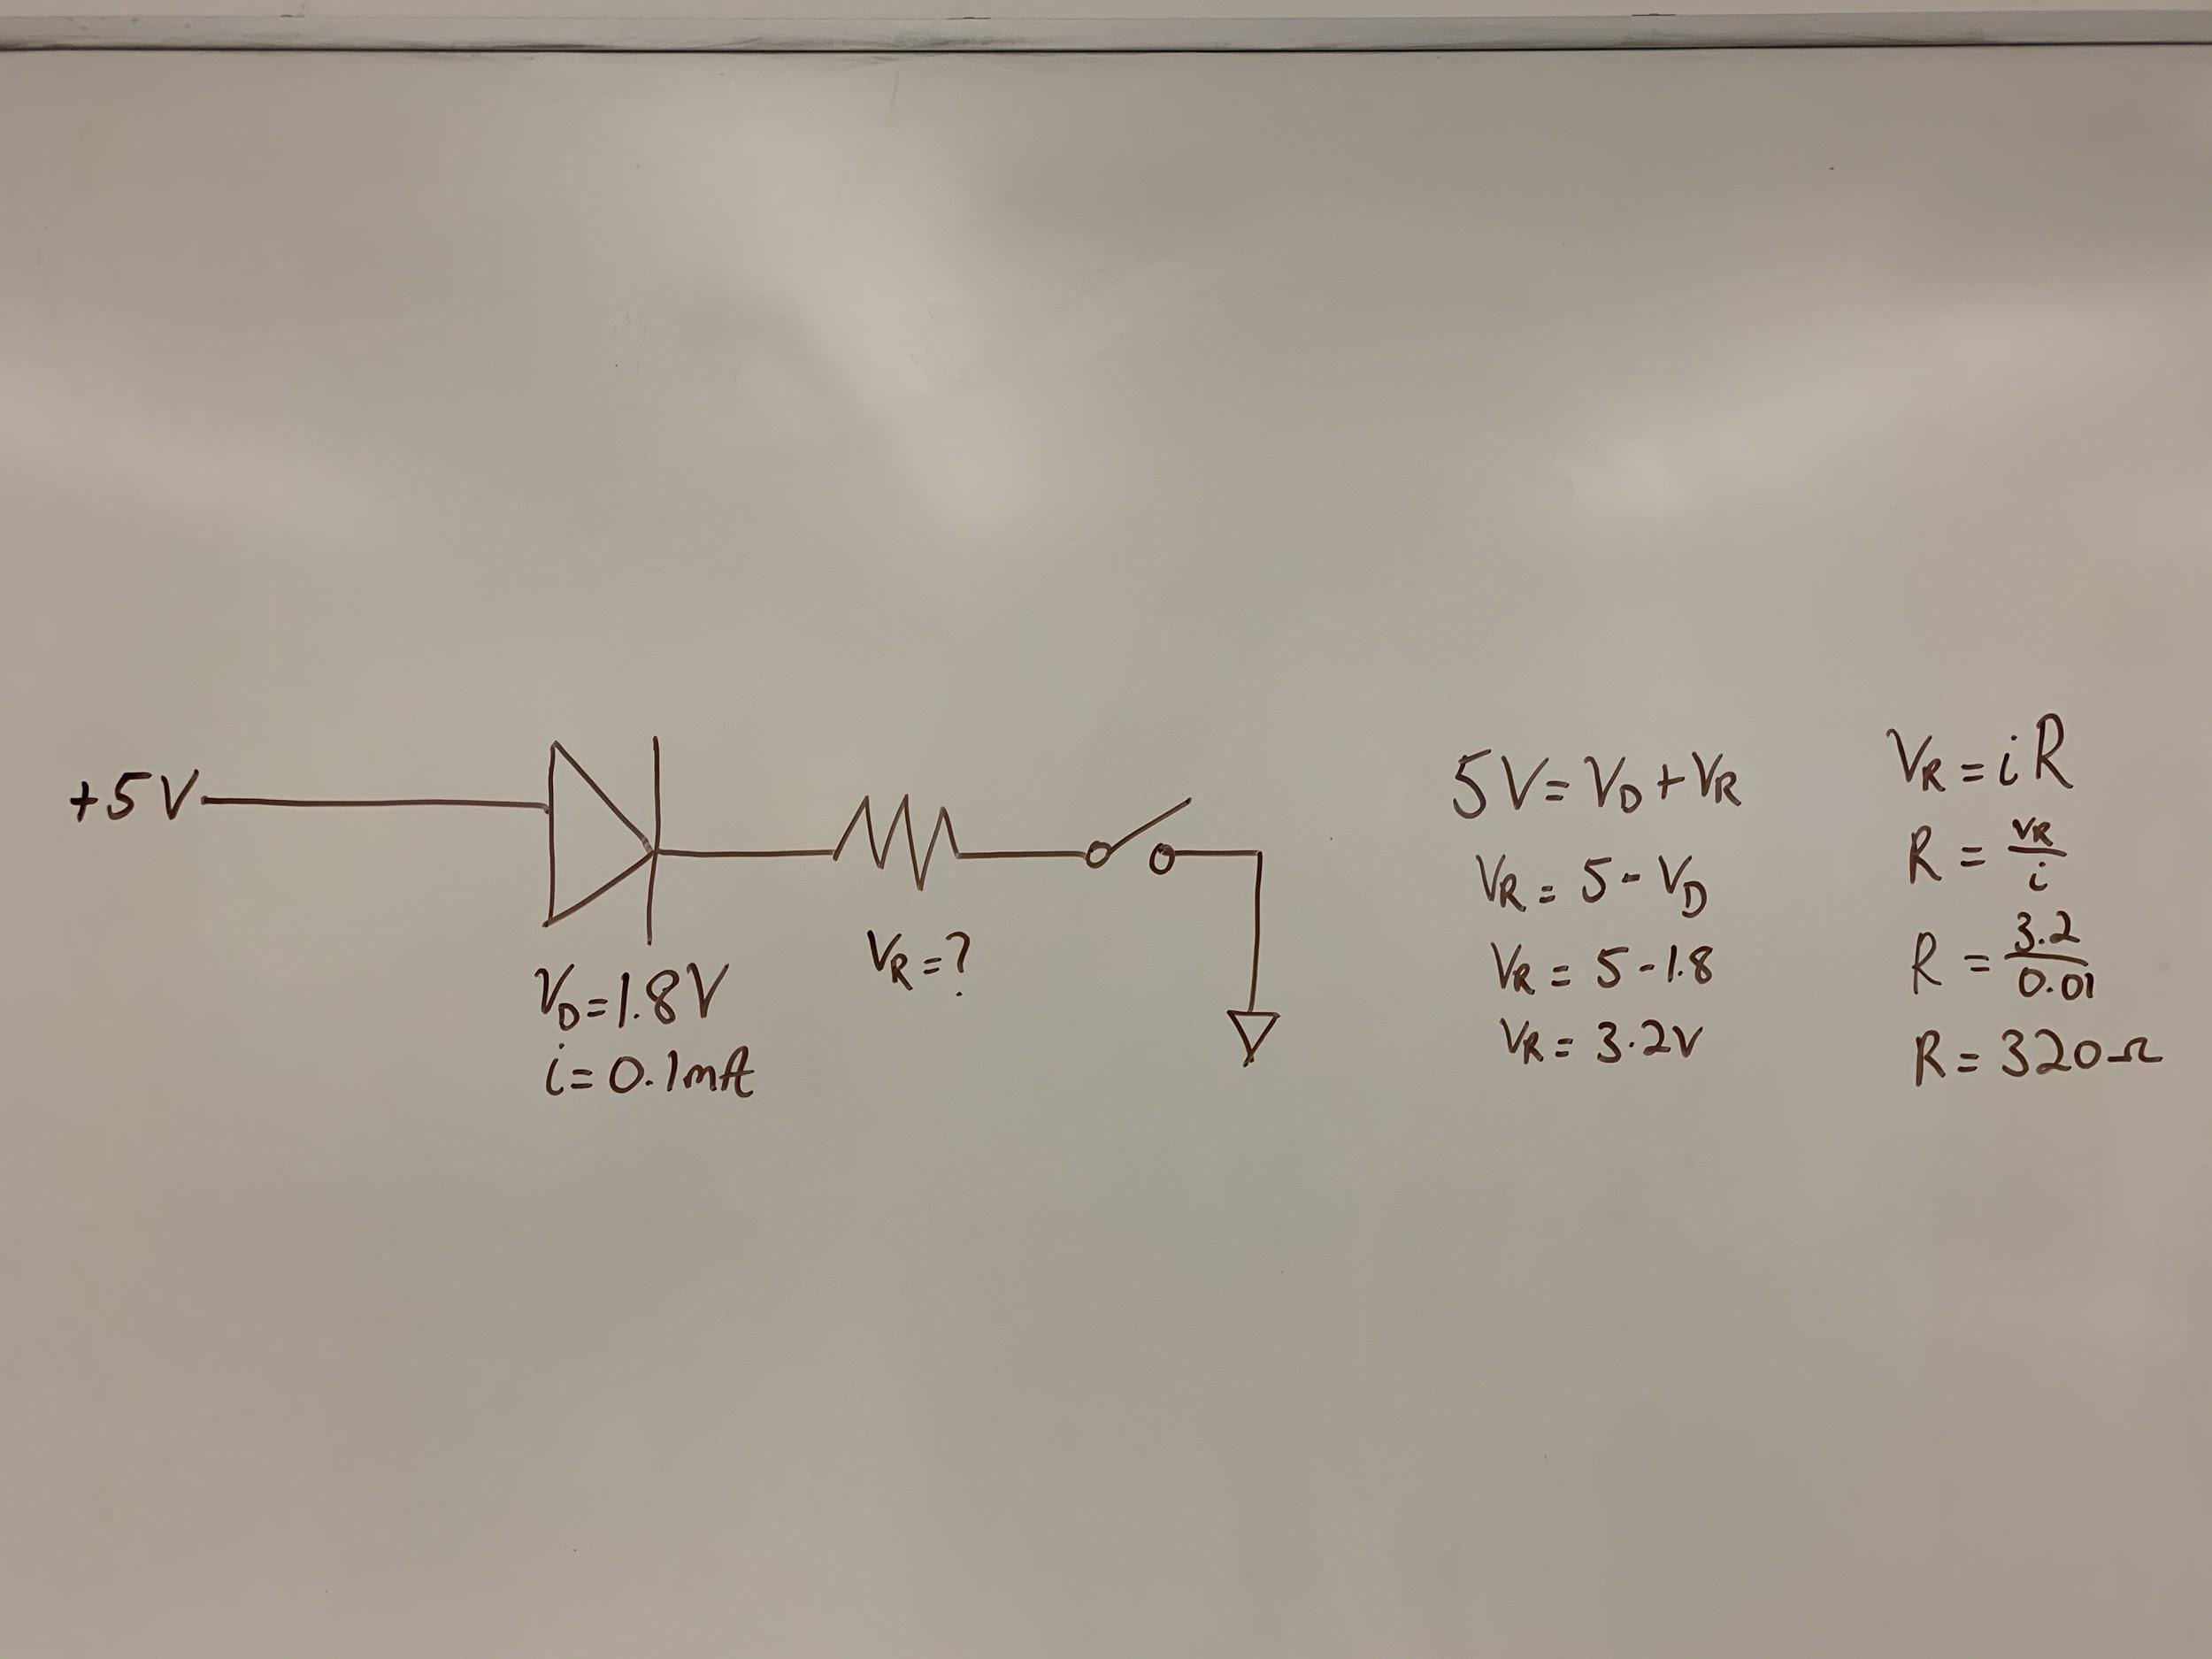 +5V
V_D=1.8V
i=0.1mA
V_R=?
5V=V_D+V_R
V_R=5-V_D
V_R=5-1.8
V_R=3.2V
V_R=iR
R=V_R/i
R=3.2/0.01
R=320Ω